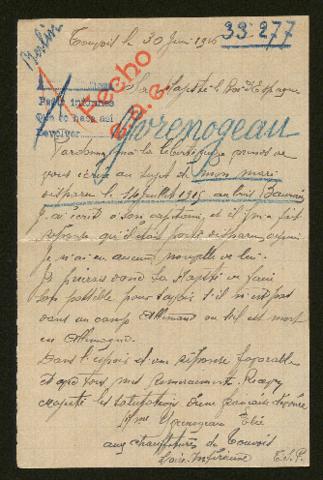 Berlin
33.277
Touvois le 30 Juin 1916
A Sa Majesté le Roi d'Espagne
Hecho
S.E.G.
Pedir informes
Que se haga así
Devolver
Yprenogeau
Pardonnez moi la liberté que je prends de
vous écrire au sujet de mon mari
disparu le 14 Juillet 1915 au bois Baurain
J'ai écrit à son capitaine, et il m'a fait
réponse qu'il était porté disparu, depuis
je n'ai eu aucune nouvelle de lui.
Je prierais donc Sa Majesté de faire
son possible pour savoir s'il n'est pas
dans un camp Allemand ou s'il est mort
en Allemagne.
Dans l'espoir d'une réponse favorable
et avec tous mes remerciements Recevez
Majesté les salutations d'une française dévouée
Mme
aux de Touvois
Loire-Inférieure
T.S.P.